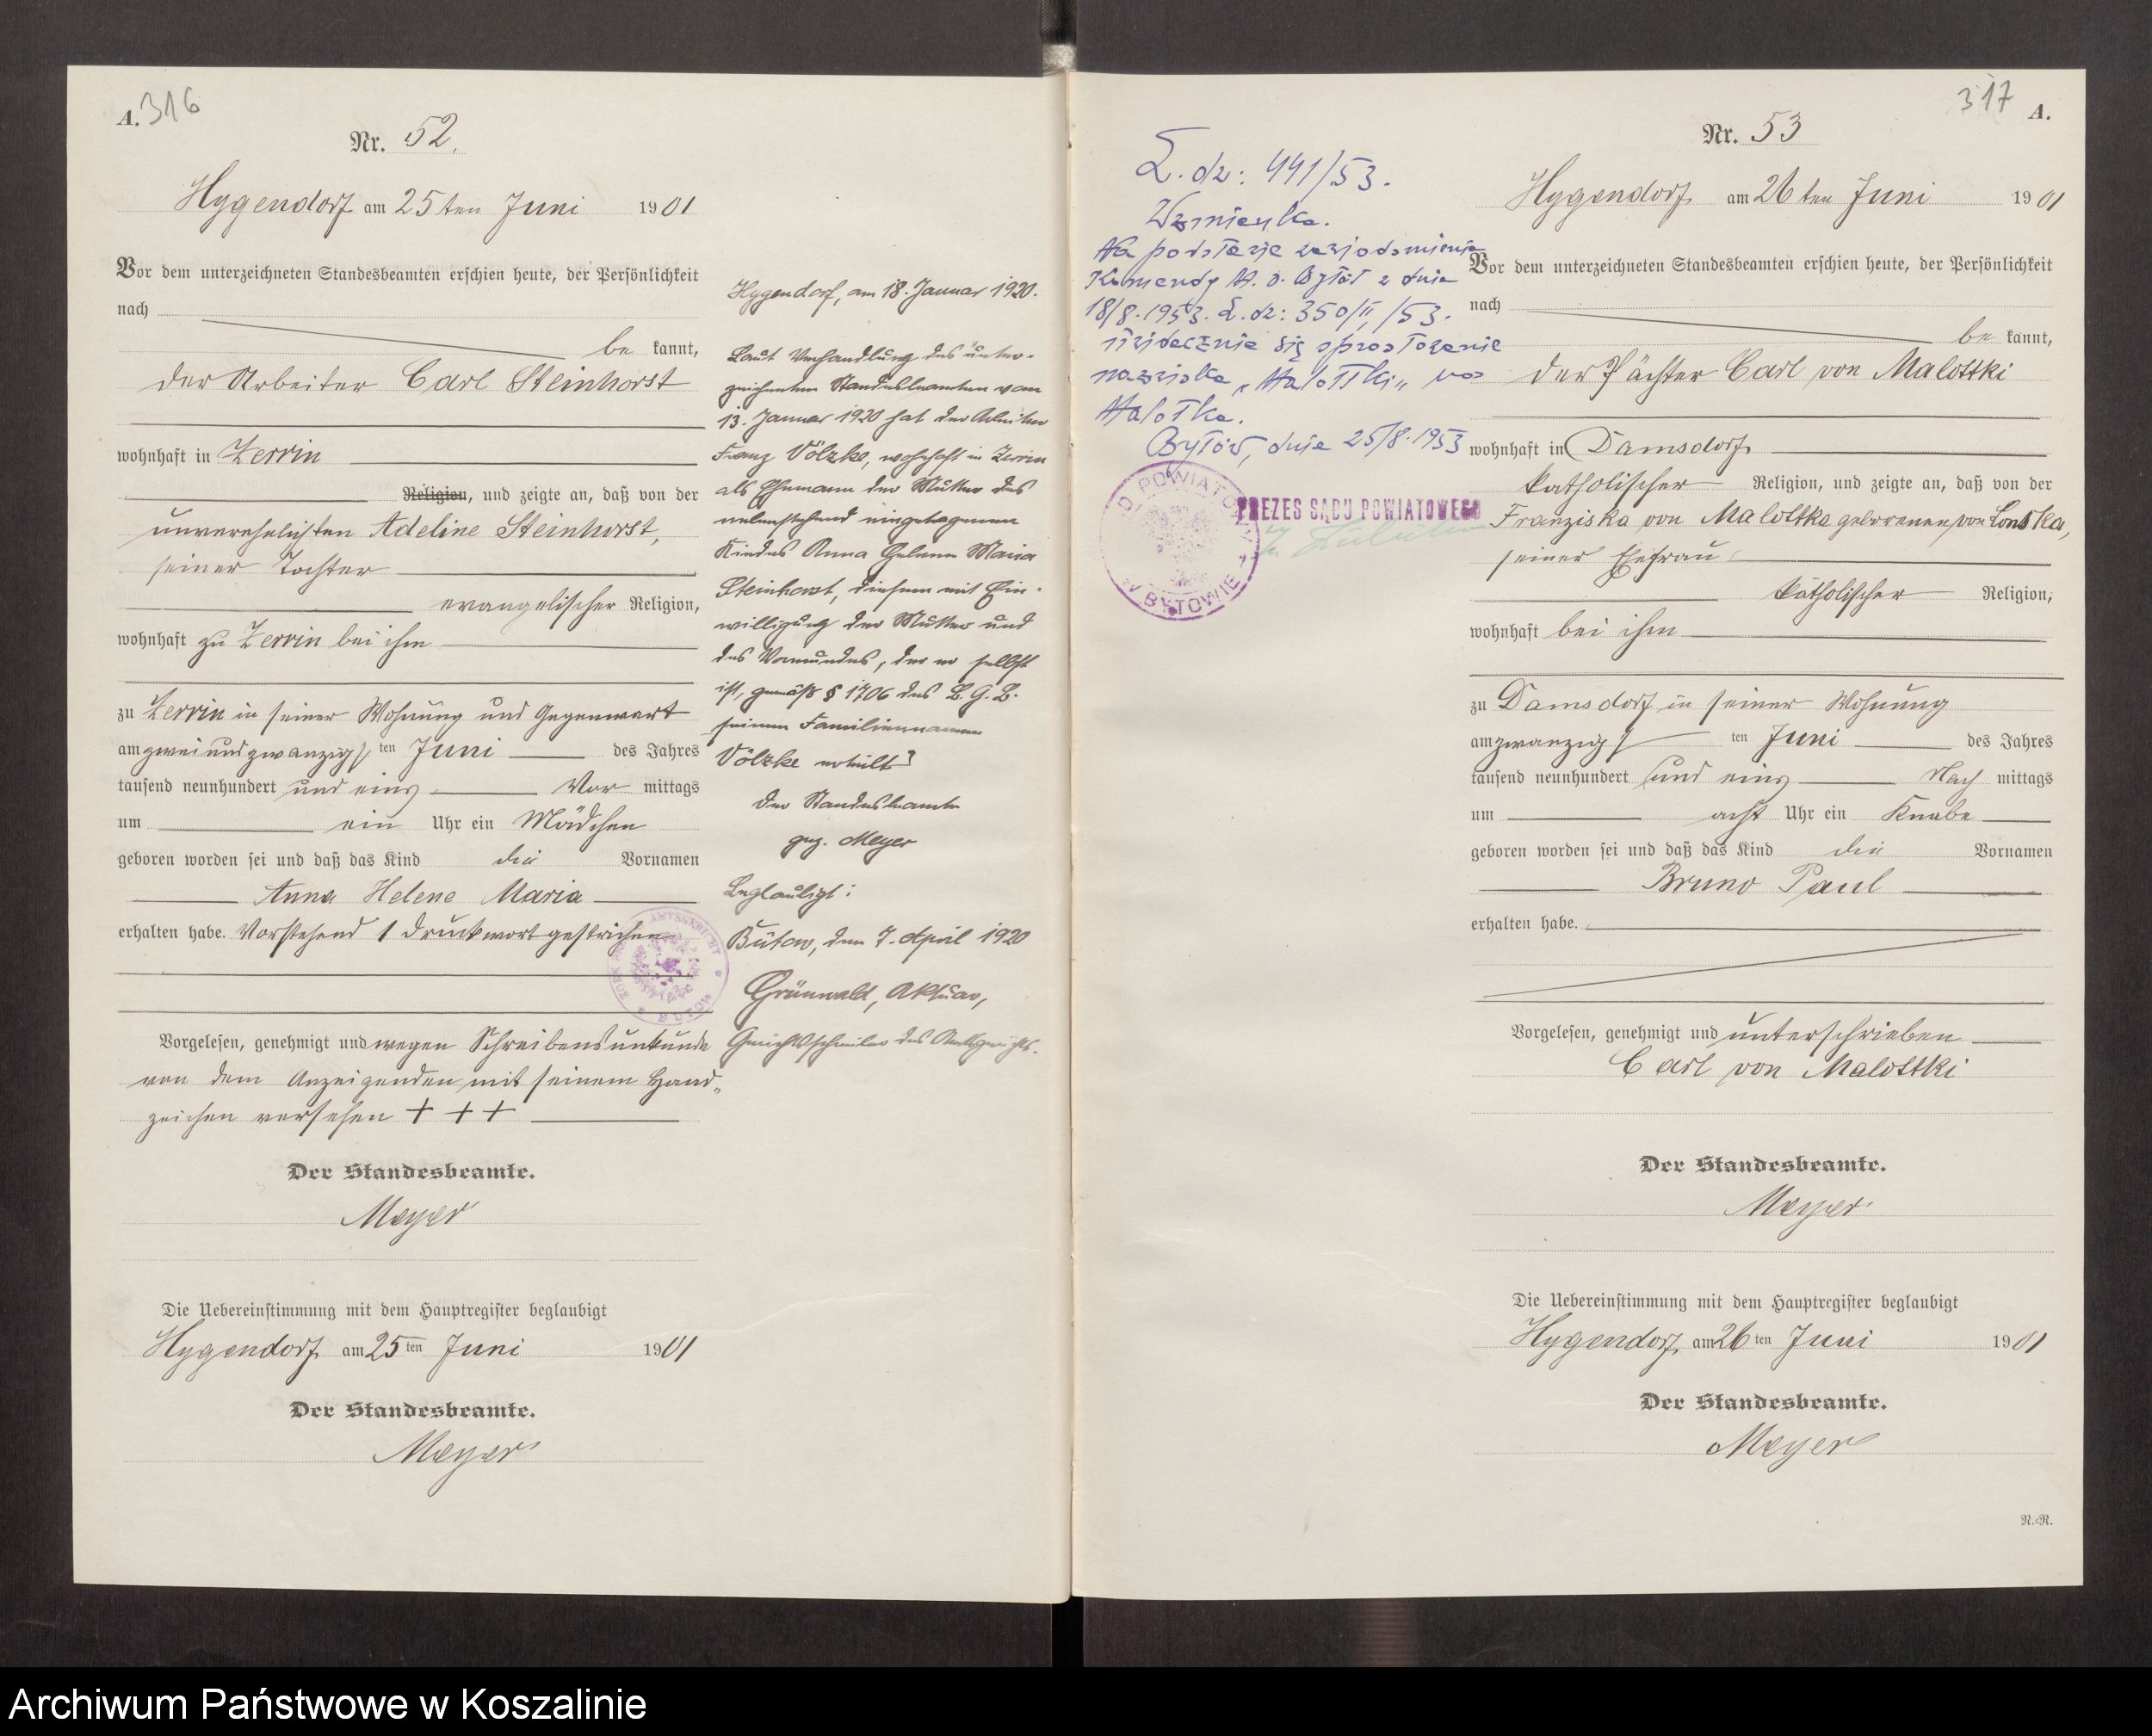 A. 316
Nr. 52.
Hygendorf am 25ten Juni 1901
Vor dem unterzeichneten Standesbeamten erschien heute, der Persönlichkeit
nach
be kannt,
der Arbeiter Carl Steinhorst
wohnhaft in Zerrin
Religion, und zeigte an, daß von der
unverehelichten Adeline Steinhorst,
seiner Tochter
evangelischer Religion,
wohnhaft zu Zerrin bei ihm
zu Zerrin in seiner Wohnung und Gegenwart
am zweiundzwanzig ten Juni des Jahres
tausend neunhundert und eins Vor mittags
um ein Uhr ein Mädchen
geboren worden sei und daß das Kind die Vornamen
Anna Helene Maria
erhalten habe. Vorstehend 1 Druckwort gestrichen
Vorgelesen, genehmigt und wegen Schreibensunkunde
von dem Anzeigenden mit seinem Hand-
zeichen versehen + + +
Der Standesbeamte.
Meyer
Die Uebereinstimmung mit dem Hauptregister beglaubigt
Hygendorf am 25 ten Juni 1901
Der Standesbeamte.
Meyer
Hygendorf, am 18. Januar 1920.
Laut Verhandlung des unter-
zeichneten Standesbeamten vom
13. Januar 1920 hat der Arbeiter
Franz Völzke, wohnhaft in Zerrin
als Ehemann der Mutter des
nebenstehend eingetragenen
Kindes Anna Helene Maria
Steinhorst, diesem mit Ein-
willigung der Mutter und
des Vormundes, der er selbst
ist, gemäß § 1706 des B. G. B.
seinen Familiennamen
Völzke erteilt
Der Standesbeamte
gez. Meyer
Beglaubigt:
Bütow, den 7. April 1920
Grünwald, Aktuar,
Gerichtsschreiber des Amtsgerichts.
317 A.
Nr. 53
L. dz: 441/53.
Wzmianka.
Na podstawie zawiadomienia
Komendy M. O. Bytów z dnia
18/8.1953. L. dz: 350/II/53.
uwidacznia się sprostowanie
nazwiska „Malottki" na
Malotka.
Bytów, dnia 25/8.1953
D POWIATO
W BYTOWIE
PREZES SĄDU POWIATOWEGO
Hygendorf am 26ten Juni 1901
Vor dem unterzeichneten Standesbeamten erschien heute, der Persönlichkeit
nach
be kannt,
der Pächter Carl von Malottki
wohnhaft in Damsdorf
katholischer Religion, und zeigte an, daß von der
Franziska von Malottka geborenen von Lonska,
seiner Ehefrau
katholischer Religion,
wohnhaft bei ihm
zu Damsdorf in seiner Wohnung
am zwanzig ten Juni des Jahres
tausend neunhundert und eins Nach mittags
um acht Uhr ein Knabe
geboren worden sei und daß das Kind die Vornamen
Bruno Paul
erhalten habe.
Vorgelesen, genehmigt und unterschrieben
Carl von Malottki
Der Standesbeamte.
Meyer
Die Uebereinstimmung mit dem Hauptregister beglaubigt
Hygendorf, am 26 ten Juni 1901
Der Standesbeamte.
Meyer
N.-N.
Archiwum Państwowe w Koszalinie